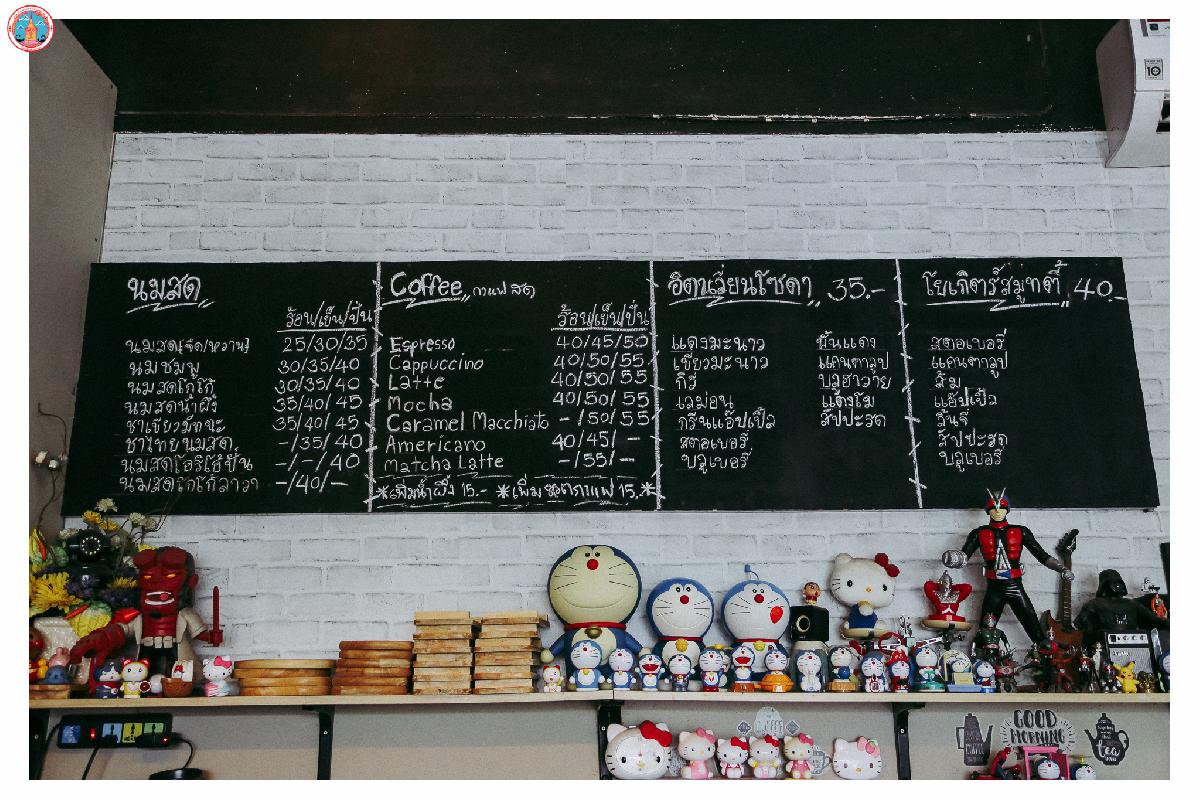 นมสด
ร้อน/เย็น/ปั่น
นมสด(จืด/หวาน) 25/30/35
นมชมพู 30/35/40
นมสดโกโก้ 30/35/40
นมสดน้ำผึ้ง 35/40/45
ชาเขียวมัทฉะ 35/40/45
ชาไทยนมสด -/35/40
นมสดโอริโอ้ปั่น -/-/40
นมสดโกโก้ลาวา -/40/-
Coffee กาแฟสด
ร้อน/เย็น/ปั่น
Espresso 40/45/50
Cappuccino 40/50/55
Latte 40/50/55
Mocha 40/50/55
Caramel Macchiato -/50/55
Americano 40/45/-
Matcha Latte -/55/-
*เพิ่มน้ำผึ้ง 15.- *เพิ่มชอตกาแฟ 15.*
อิตาเลี่ยนโซดา 35.-
แดงมะนาว ขึ้นแดง
เขียวมะนาว แคนตาลูป
กีวี่ บลูฮาวาย
เลม่อน แตงโม
กรีนแอ๊ปเปิ้ล สัปปะรด
สตอเบอรี่
บลูเบอรี่
โยเกิตร์สมูทตี้ 40.-
สตอเบอรี่
แคนตาลูป
ส้ม
แอ๊ปเปิ้ล
ลิ้นจี่
สัปปะรด
บลูเบอรี่
10
COFFEE
GOOD MORNING
tea